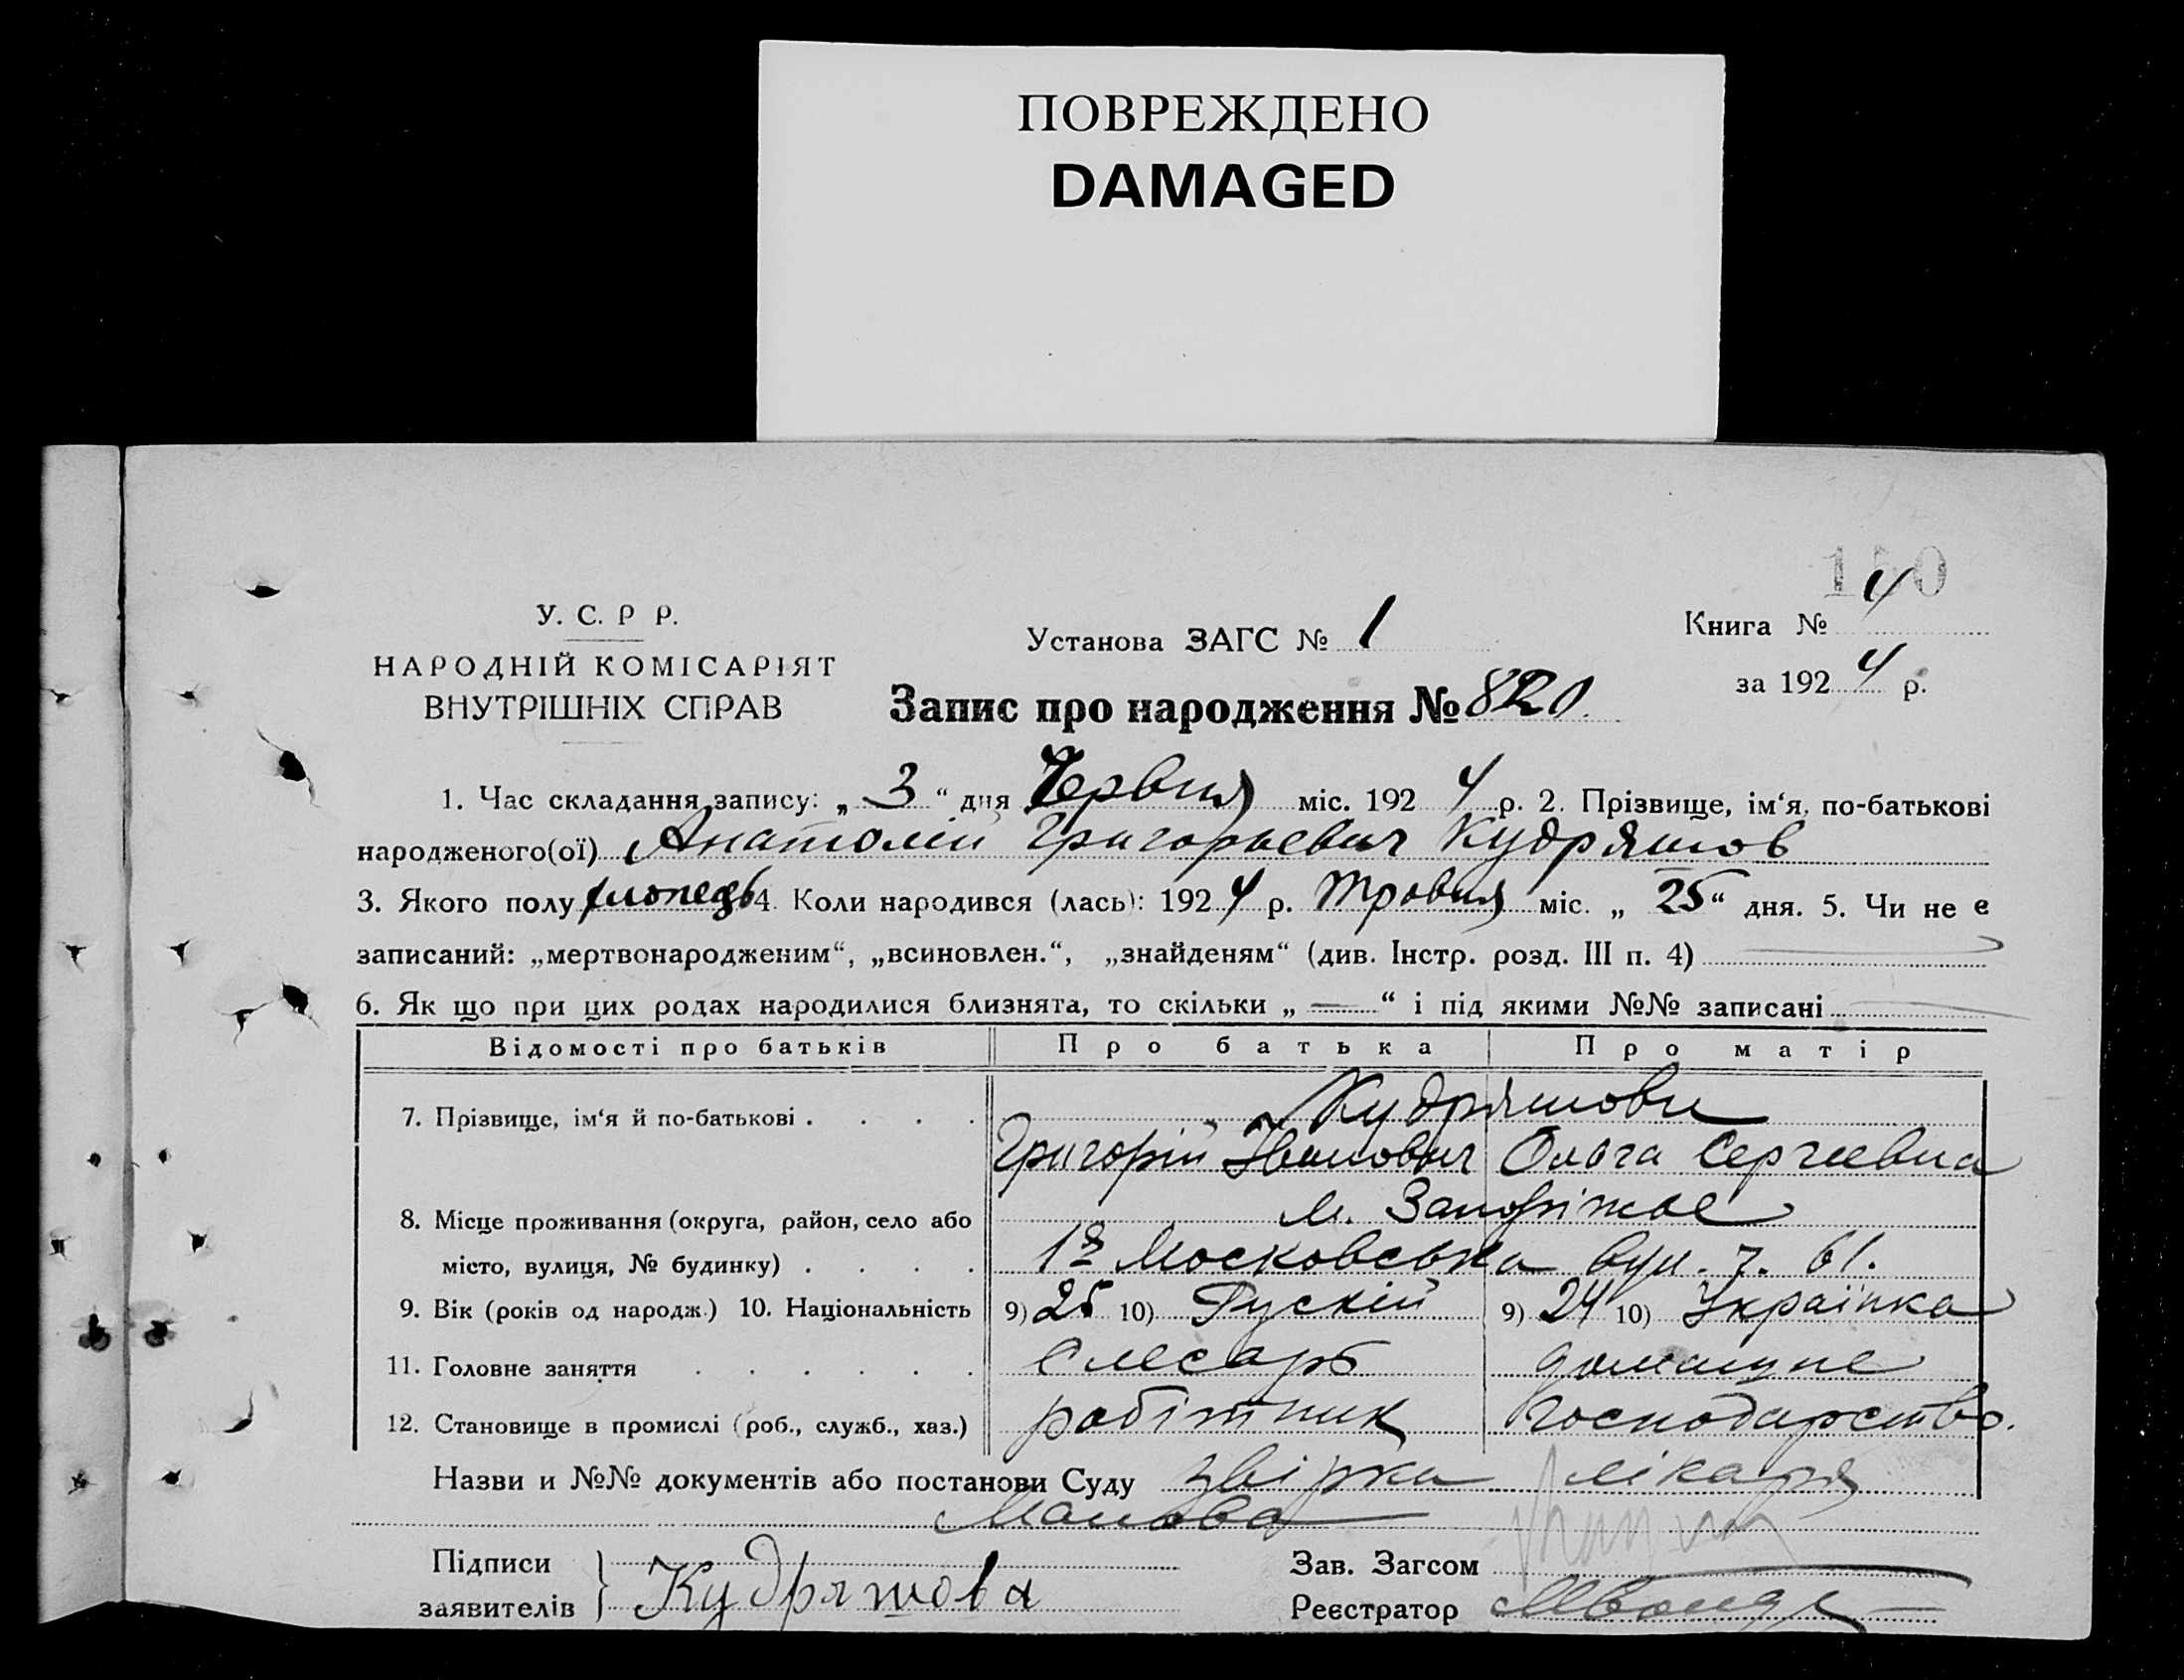 ПОВРЕЖДЕНО
DAMAGED
150
У. С. Р Р.
НАРОДНІЙ КОМІСАРІЯТ
ВНУТРІШНІХ СПРАВ
Установа ЗАГС № 1
Книга № 4
за 1924 р.
Запис про народження № 820
1. Час складання запису: „3“ дня Червня міс. 1924 р. 2. Прізвище, ім‘я, по-батькові
народженого(ої) Анатолій Григорьевич Кудряшов
3. Якого полу хлопець 4. Коли народився (лась): 1924 р. Травня міс. „25“ дня. 5. Чи не є
записаний: „мертвонародженим“, „всиновлен.“, „знайденям“ (див. Інстр. розд. III п. 4)
6. Як що при цих родах народилися близнята, то скільки „ — “ і під якими №№ записані
Відомості про батьків Про батька Про матір
7. Прізвище, ім‘я й по-батькові . . . . Кудряшови
Григорій Іванович Ольга Сергеевна
8. Місце проживання (округа, район, село або м. Запоріжже
місто, вулиця, № будинку) . . . . 1я Московська вул. 61.
9. Вік (років од народж.) 10. Національність 9) 25 10) Руский 9) 24 10) Українка
11. Головне заняття . . . . . . Слесарь домашне
12. Становище в промислі (роб., служб., хаз.) робітник господарство.
Назви и №№ документів або постанови Суду лікаря
Підписи
заявителів } Кудряшова
Зав. Загсом
Реєстратор